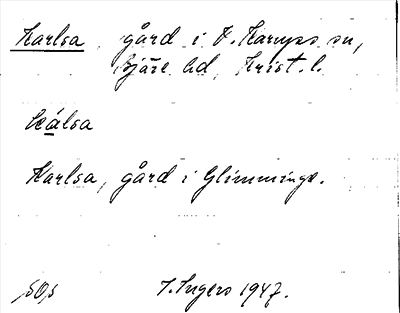 Karlsa, gård i V. Karups sn,
Bjäre hd, Krist. l.
Kálsa
Karlsa, gård i Glimminge.
I. Ingers 1947.